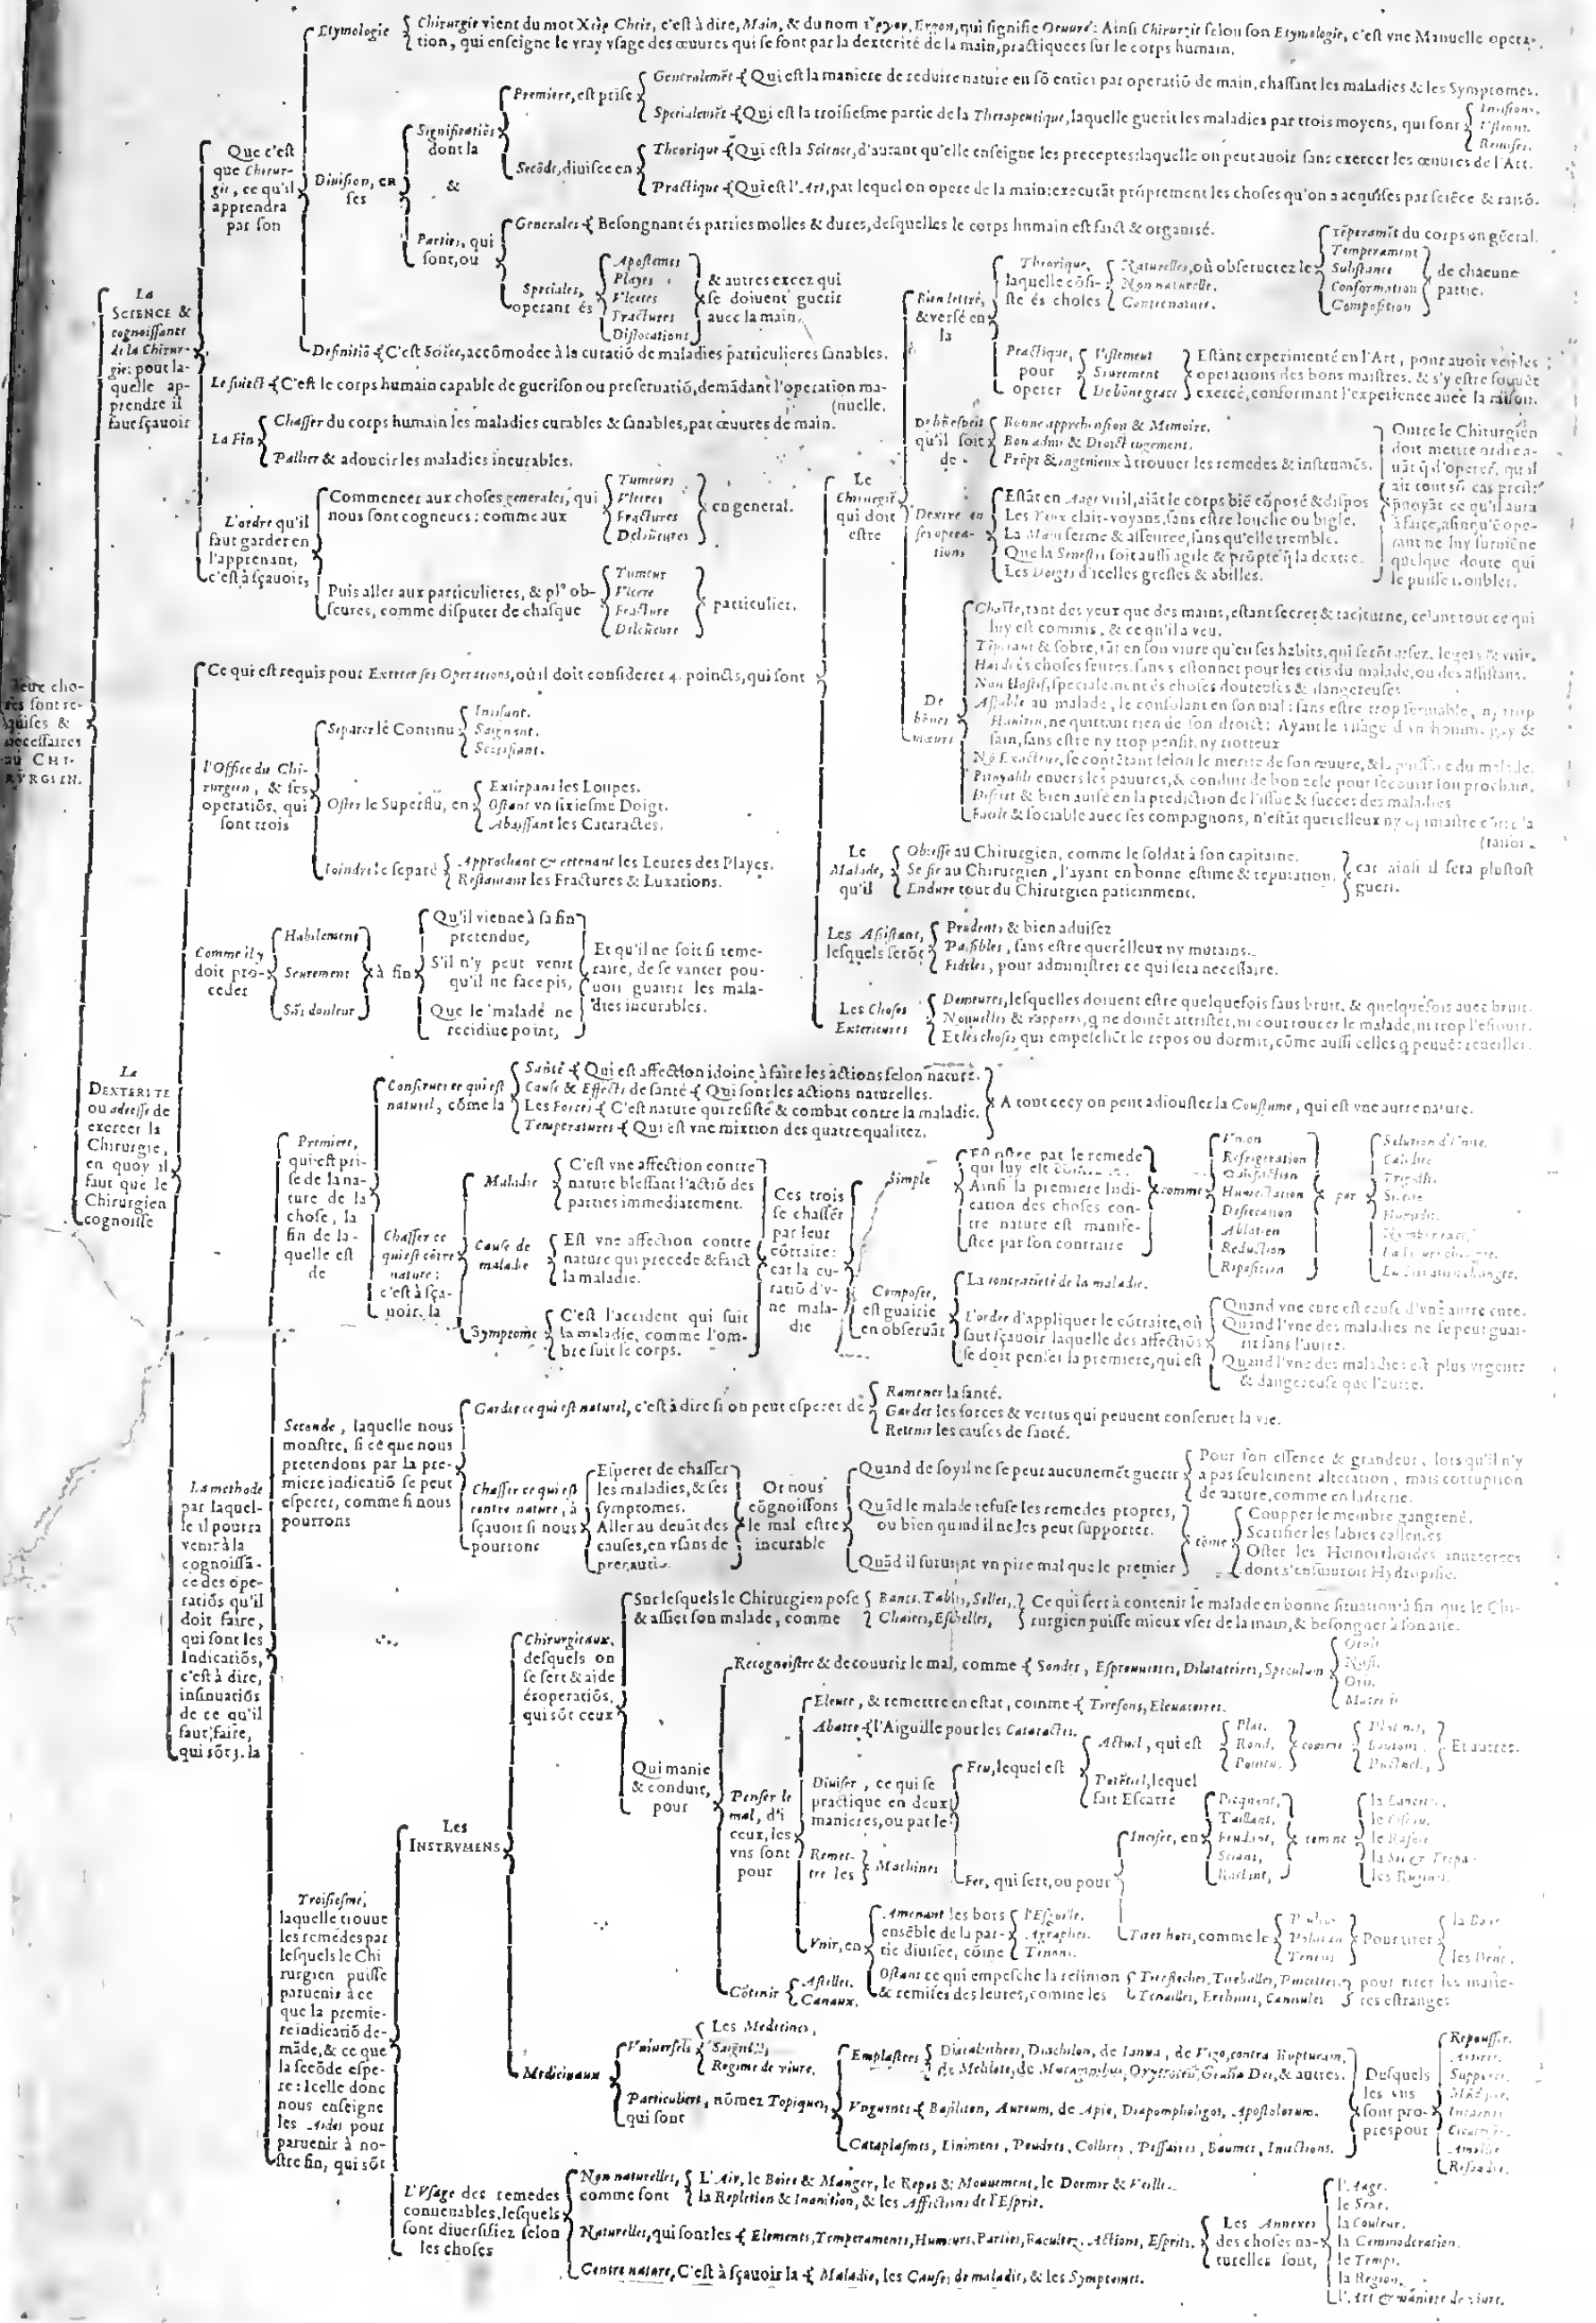 Etymologie
Chirurgie vient du mot Χεὶρ Cheir, c'eſt à dire, Main, & du nom Ergon, qui ſignifie Oeuure: Ainſi Chirurgie ſelon ſon Etymologie, c'eſt vne Manuelle opera-
tion, qui enſeigne le vray vſage des œuures qui ſe font par la dexterité de la main, practiquees ſur le corps humain.
Que c'eſt
que Chirur-
gie, ce qu'il
apprendra
par ſon
Diuiſion, en
ſes
Significatiōs
dont la
&
Premiere, eſt priſe
Generalemēt Qui eſt la maniere de reduire nature en ſō entier par operatiō de main, chaſſant les maladies & les Symptomes.
Specialemēt Qui eſt la troiſieſme partie de la Therapeutique, laquelle guerit les maladies par trois moyens, qui ſont
Secōde, diuiſee en
Theorique Qui eſt la Science, d'autant qu'elle enſeigne les preceptes: laquelle on peut auoir ſans exercer les œuures de l'Art.
Practique Qui eſt l'Art, par lequel on opere de la main: executāt proprement les choſes qu'on a acquiſes par ſciēce & raiſō.
Parties, qui
ſont, ou
Generales Beſongnant és parties molles & dures, deſquelles le corps humain eſt faict & organiſé.
Speciales,
operant és
Apoſtemes
Playes
Vlceres
Fractures
Diſlocations
& autres excez qui
ſe doiuent guerir
auec la main.
Definitiō C'eſt Sciēce, accōmodee à la curatiō de maladies particulieres ſanables.
La
SCIENCE &
cognoiſſance
de la Chirur-
gie: pour la-
quelle ap-
prendre il
faut ſçauoir
Le ſuiect C'eſt le corps humain capable de gueriſon ou preſeruatiō, demādant l'operation ma-
(nuelle.
La Fin
Chaſſer du corps humain les maladies curables & ſanables, par œuures de main.
Pallier & adoucir les maladies incurables.
L'ordre qu'il
faut garder en
l'apprenant,
c'eſt à ſçauoir,
Commencer aux choſes generales, qui
nous ſont cogneues: comme aux
Tumeurs
Vlceres
Fractures
Deloüeures
en general.
Puis aller aux particulieres, & pl⁹ ob-
ſcures, comme diſputer de chaſque
Tumeur
Vlcere
Fracture
Deloüeure
particulier.
Ce qui eſt requis pour Exercer ſes Operations, où il doit conſiderer 4. poincts, qui ſont
Le
Chirurgiē
qui doit
eſtre
Bien lettré,
& verſé en
la
Theorique,
laquelle cōſi-
ſte és choſes
Naturelles, où obſeruerez le
Non naturelles.
Contre nature.
Tēperamēt du corps en gēeral.
Temperament
Subſtance
Conformation
Compoſition
de chacune
partie.
Practique,
pour
operer
Viſtement
Seurement
De bōne grace
Eſtant experimenté en l'Art, pour auoir veu les
operations des bons maiſtres, & s'y eſtre ſouuēt
exercé, conformant l'experience auec la raiſon.
qu'il ſoit
de
Bonne apprehenſion & Memoire.
Bon aduis & Droict iugement.
Prōpt & ingenieux à trouuer les remedes & inſtrumēs.
Dextre en
ſes opera-
tions
Eſtāt en Aage viril, aiāt le corps biē cōpoſé & diſpos
Les Yeux clair-voyans, ſans eſtre louche ou bigle.
La Main ferme & aſſeuree, ſans qu'elle tremble.
Que la Seneſtre ſoit auſſi agile & prōpte q̄ la dextre.
Les Doigts d'icelles greſles & abilles.
Outre le Chirurgien
doit mettre ordre a-
uāt q̄ d'operer, qu'il
ait tout sō cas preſt:
quelque doute qui
le puiſſe troubler.
De
bōnes
mœurs
Chaſte, tant des yeux que des mains, eſtant ſecret & taciturne, celant tout ce qui
luy eſt commis, & ce qu'il a veu.
Hardi és choſes ſeures, ſans s'eſtonner pour les cris du malade, ou des aſſiſtans.
Non Haſtif, ſpecialement és choſes douteuſes & dangereuſes
Affable au malade, le conſolant en ſon mal: ſans eſtre trop
ſain, ſans eſtre ny trop penſif, ny rioteux
Pitoyable enuers les pauures, & conduit de bon zele pour ſecourir ſon prochain.
Diſcret & bien auiſé en la prediction de l'iſſue & ſucces des maladies
Facile & ſociable auec ſes compagnons, n'eſtāt querelleux
Le
Malade,
qu'il
Obeiſſe au Chirurgien, comme le ſoldat à ſon capitaine.
Se fie au Chirurgien, l'ayant en bonne eſtime & reputation.
Endure tout du Chirurgien patiemment.
car ainſi il ſera pluſtoſt
gueri.
Les Aſſiſtans,
leſquels ſerōt
Prudents & bien aduiſez
Paiſibles, ſans eſtre querelleux ny mutains.
Fideles, pour adminiſtrer ce qui ſera neceſſaire.
Les Choſes
Exterieures
Demeures, leſquelles doiuent eſtre quelquefois ſans bruit, & quelquefois auec bruit.
Nouuelles & rapports, q̄ ne doiuēt attriſter, ni courroucer le malade, ni trop l'eſiouir.
Et les choſes qui empeſchēt le repos ou dormir, cōme auſſi celles
neceſſaires
au CHI-
RVRGIEN.
l'Office du Chi-
rurgien, & ſes
operatiōs, qui
ſont trois
Separer le Continu
Inciſant.
Saignant.
Scarifiant.
Oſter le Superflu, en
Extirpant les Loupes.
Oſtant vn ſixieſme Doigt.
Abaiſſant les Cataractes.
Ioindre le ſeparé
Approchant & retenant les Leures des Playes.
Reſtaurant les Fractures & Luxations.
La
DEXTERITE
ou adreſſe de
exercer la
Chirurgie,
en quoy il
faut que le
Chirurgien
cognoiſſe
Comme il y
doit pro-
ceder
Habilement
Seurement
Sās douleur
à fin
Qu'il vienne à ſa fin
pretendue,
S'il n'y peut venir
qu'il ne face pis,
Que le malade ne
recidiue point,
Et qu'il ne ſoit ſi teme-
raire, de ſe vanter pou-
uoir guairir les mala-
dies incurables.
La methode
par laquel-
le il pourra
venir à la
cognoiſſā-
ce des ope-
ratiōs qu'il
doit faire,
qui ſont les
Indicatiōs,
c'eſt à dire,
inſinuatiōs
de ce qu'il
faut faire,
qui sōt 3. la
Premiere,
qui eſt pri-
ſe de la na-
ture de la
choſe, la
fin de la-
quelle eſt
de
Conſeruer ce qui eſt
naturel, cōme la
Santé Qui eſt affection idoine à faire les actions ſelon nature.
Cauſe & Effects de ſanté Qui ſont les actions naturelles.
Les Forces C'eſt nature qui reſiſte & combat contre la maladie.
Temperatures Qui eſt vne mixtion des quatre qualitez.
A tout cecy on peut adiouſter la Couſtume, qui eſt vne autre nature.
Chaſſer ce
qui eſt cōtre
nature:
c'eſt à ſça-
uoir, la
Maladie
C'eſt vne affection contre
nature bleſſant l'actiō des
parties immediatement.
Cauſe de
maladie
Eſt vne affection contre
nature qui precede & faict
la maladie.
Symptome
C'eſt l'accident qui ſuit
la maladie, comme l'om-
bre ſuit le corps.
Ces trois
ſe chaſſēt
par leur
cōtraire:
car la cu-
ratiō d'v-
ne mala-
die
Simple
par le remede
qui luy eſt
Ainſi la premiere Indi-
cation des choſes con-
tre nature eſt manife-
ſtee par ſon contraire
comme
Vnion
Refrigeration
Calefaction
Humectation
Deſiccation
Ablation
Reduction
Repoſition
par
Solution d'vnité.
Compoſee,
eſt guairie
en obſeruāt
La contrarieté de la maladie.
L'ordre d'appliquer le cōtraire, où
faut ſçauoir laquelle des affectiōs
ſe doit penſer la premiere, qui eſt
Quand vne cure eſt cauſe d'vne autre cure.
Quand l'vne des maladies ne ſe peut guai-
rir ſans l'autre.
Quand l'vne des maladies eſt plus vrgente
& dangereuſe que l'autre.
Seconde, laquelle nous
monſtre, ſi ce que nous
pretendons par la pre-
miere indicatiō ſe peut
eſperer, comme ſi nous
pourrons
Garder ce qui eſt naturel, c'eſt à dire ſi on peut eſperer de
Ramener la ſanté.
Garder les forces & vertus qui peuuent conſeruer la vie.
Retenir les cauſes de ſanté.
Chaſſer ce qui eſt
contre nature, à
ſçauoir ſi nous
pourrons
Eſperer de chaſſer
les maladies, & ſes
ſymptomes.
Aller au deuāt des
cauſes, en vſans de
Or nous
cōgnoiſſons
le mal eſtre
incurable
Quand de ſoy il ne ſe peut aucunemēt guerir
Quād le malade refuſe les remedes propres,
ou bien quand il ne les peut ſupporter.
Quād il ſuruient vn pire mal que le premier
Pour ſon eſſence & grandeur, lors qu'il n'y
a pas ſeulement alteration, mais corruption
de nature, comme en ladrerie.
cōme
Coupper le membre gangrené.
Scarifier les labies calleuſes
Oſter les Hemorrhoides inueterees
dont s'enſuiuroit Hydropiſie.
Troiſieſme,
laquelle trouue
les remedes par
leſquels le Chi
rurgien puiſſe
paruenir à ce
que la premie-
re indicatiō de-
māde, & ce que
la ſecōde eſpe-
re: Icelle donc
nous enſeigne
les Aides pour
paruenir à no-
ſtre fin, qui sōt
Les
INSTRVMENS
Chirurgicaux,
deſquels on
ſe ſert & aide
és operatiōs,
qui sōt ceux
Sur leſquels le Chirurgien poſe
& aſſiet ſon malade, comme
Bancs, Tables, Selles,
Chaires, Eſchelles,
Ce qui ſert à contenir le malade en bonne ſituation à fin que le Chi-
rurgien puiſſe mieux vſer de la main, & beſongner à ſon aiſe.
Qui manie
& conduit,
pour
Recognoiſtre & decouurir le mal, comme Sondes, Eſprouuettes, Dilatatoires, Speculum
Penſer le
mal, d'i
ceux, les
vns ſont
pour
Eleuer, & remettre en eſtat, comme Tirefons, Eleuatoires.
Abatre l'Aiguille pour les Cataractes.
Diuiſer, ce qui ſe
practique en deux
manieres, ou par le
Feu, lequel eſt
Actuel, qui eſt
Plat.
Rond.
Pointu.
comme
Et autres.
Potētiel, lequel
fait Eſcarre
Fer, qui ſert, ou pour
Inciſer, en
Picquant,
Taillant,
Fendant,
comme
la Lancette,
le Raſoir
Tirer hors, comme le
Pour tirer
Remet-
tre les
Machines
Vnir, en
Amenant les bors
enſēble de la par-
tie diuiſee, cōme
l'Eſguille.
Agraphes.
Oſtant ce qui empeſche la reünion
& remiſes des leures, comme les
Tenailles, Erthines, Cannules
pour tirer les matie-
res eſtranges
Cōtenir
Aſtelles.
Canaux.
Medicinaux
Vniuerſels
Les Medecines,
Regime de viure.
Particuliers, nōmez Topiques,
qui ſont
Emplaſtres
Diacalcitheos, Diachilon, de Ianua, de Vigo, contra Rupturam,
de Meliloto, Gratia Dei, & autres.
Vnguents Baſilicon, Aureum, de Apio, Diapompholigos, Apoſtolorum.
Cataplaſmes, Liniments, Poudres, Collires, Peſſaires, Baumes, Iniections.
Deſquels
les vns
ſont pro-
pres pour
Repouſſer.
L'Vſage des remedes
conuenables, leſquels
ſont diuerſifiez ſelon
les choſes
Non naturelles,
comme ſont
L'Air, le Boire & Manger, le Repos & Mouuement, le Dormir & Veille.
la Repletion & Inanition, & les Affections de l'Eſprit.
Naturelles, qui ſont les Elements, Temperaments, Humeurs, Parties, Facultez, Actions, Eſprits.
Les Annexes
des choſes na-
turelles ſont,
l'Aage.
le Sexe.
la Couleur.
la Commoderation.
le Temps.
la Region.
l'Art & maniere de viure.
Contre nature, C'eſt à ſçauoir la Maladie, les Cauſes de maladie, & les Symptomes.